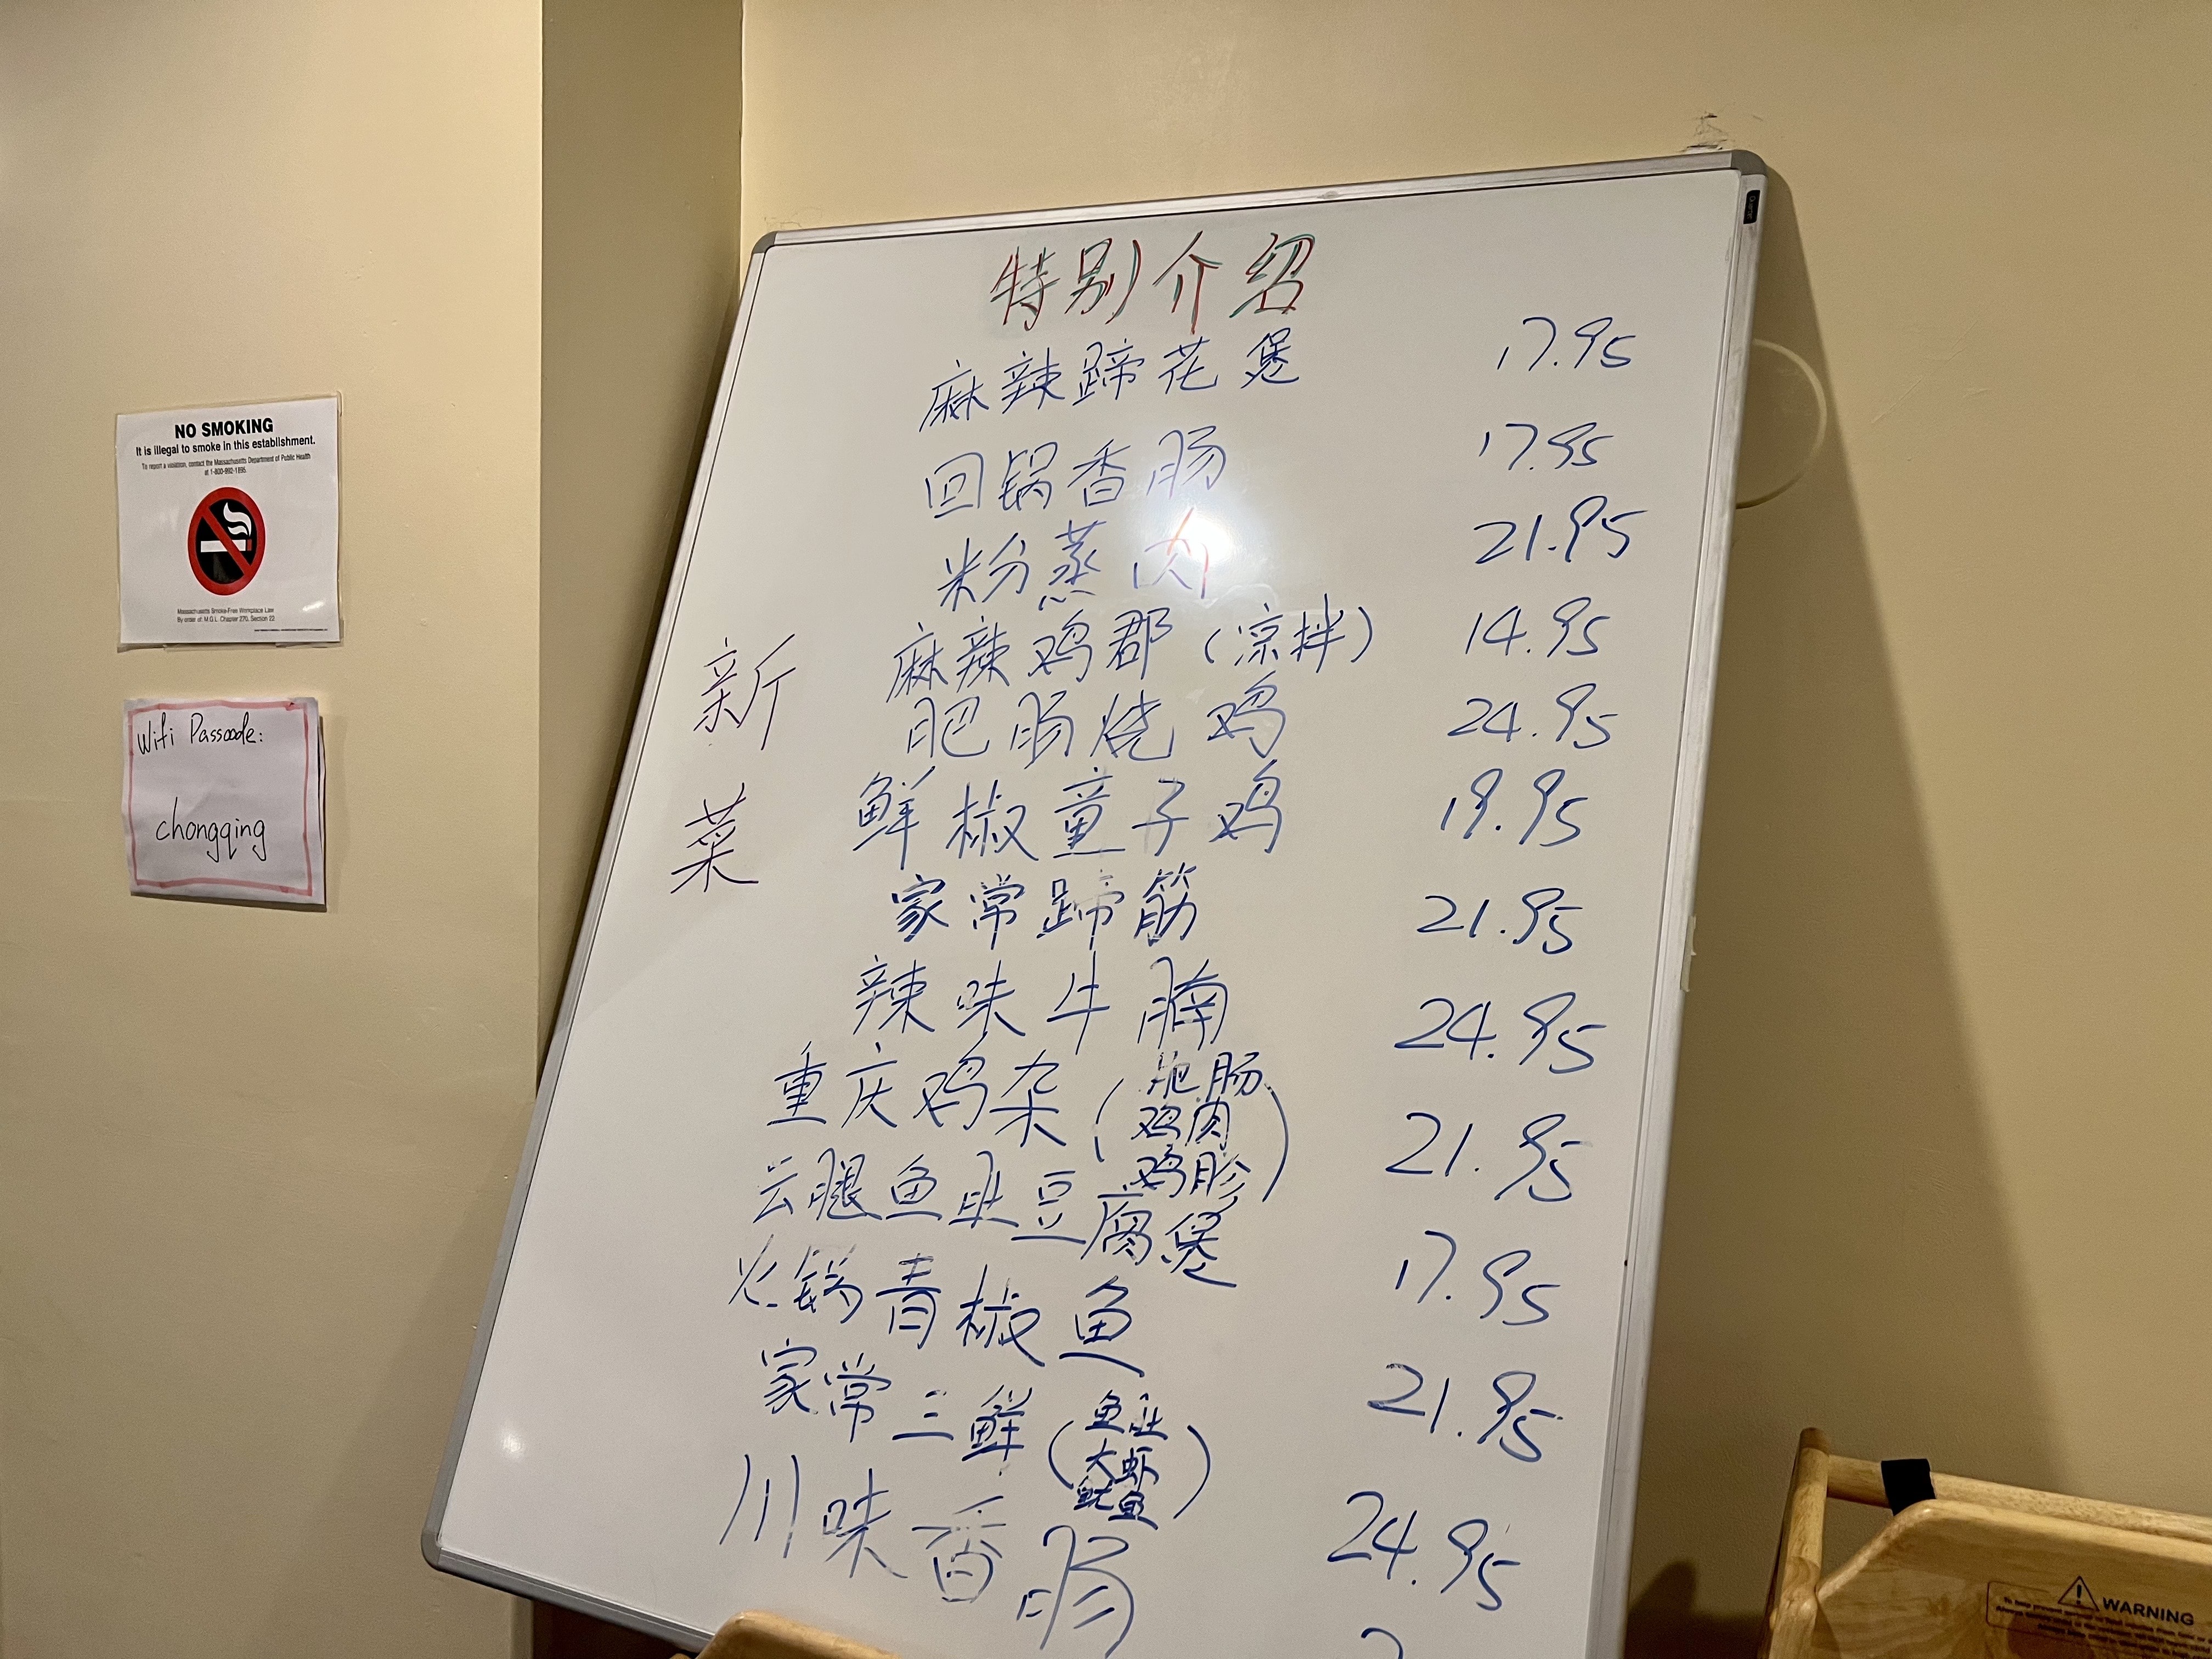 NO SMOKING
It is illegal to smoke in this establishment.
To report a violation, contact the Massachusetts Department of Public Health
at 1-800-992-1895
Massachusetts Smoke-Free Workplace Law
By order of: M.G.L. Chapter 270, Section 22
Wifi Passcode:
chongqing
特别介绍
新菜
麻辣蹄花煲 17.95
回锅香肠 17.95
粉蒸肉 21.95
麻辣鸡郡(凉拌) 14.95
肥肠烧鸡 24.95
鲜椒童子鸡 19.95
家常蹄筋 21.95
辣味牛腩 24.95
重庆鸡杂(肥肠 鸡肉 鸡胗) 21.95
云腿鱼肚豆腐煲 17.95
火锅青椒鱼 21.95
家常三鲜(鱼肚 大虾 鱿鱼) 24.95
川味香肠
WARNING